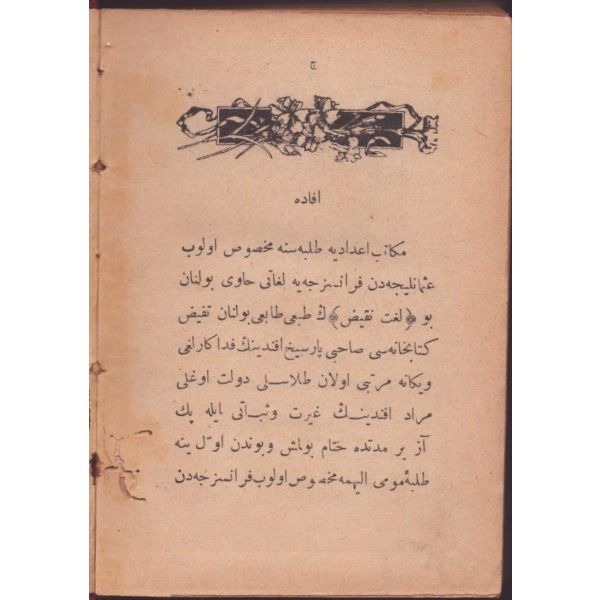 ج
افاده
مكاتب اعداديه طلبه‌سنه مخصوص اولوب
عثمانليجه‌دن فرانسزجه‌يه لغاتى حاوى بولنان
بو ﴿لغت نقيض﴾ ك طبعى طابعى بولنان تفيض
كتابخانه‌سى صاحبى پارسيخ افندينك فداكارلغى
ويكانه مرتبى اولان طلاسلى دولت اوغلى
مراد افندينك غيرت وثباتى ايله پك
آز بر مدتده ختام بولمش وبوندن اوّل ينه
طلبهٔ مومى اليهمه مخصوص اولوب فرانسزجه‌دن